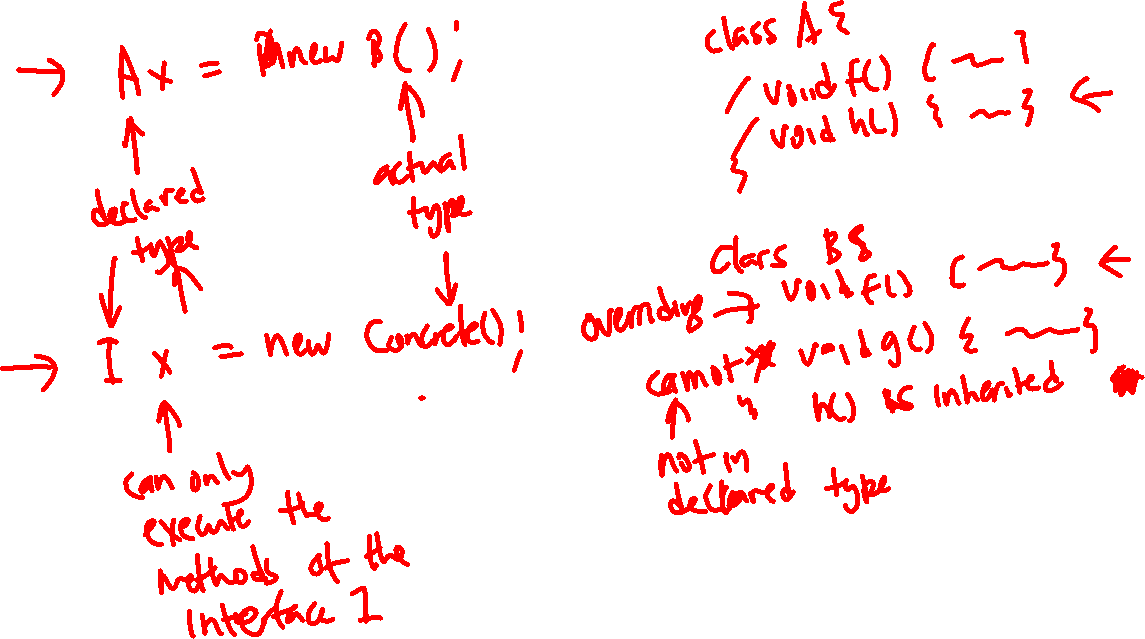 A x = new B();
declared
type
actual
type
I x = new Concrete();
can only
execute the
methods of the
interface I
class A {
void f() { ~ }
void h() { ~ }
}
class B {
overriding → void f() { ~ }
cannot void g() { ~ }
} h() is inherited
not in
declared type